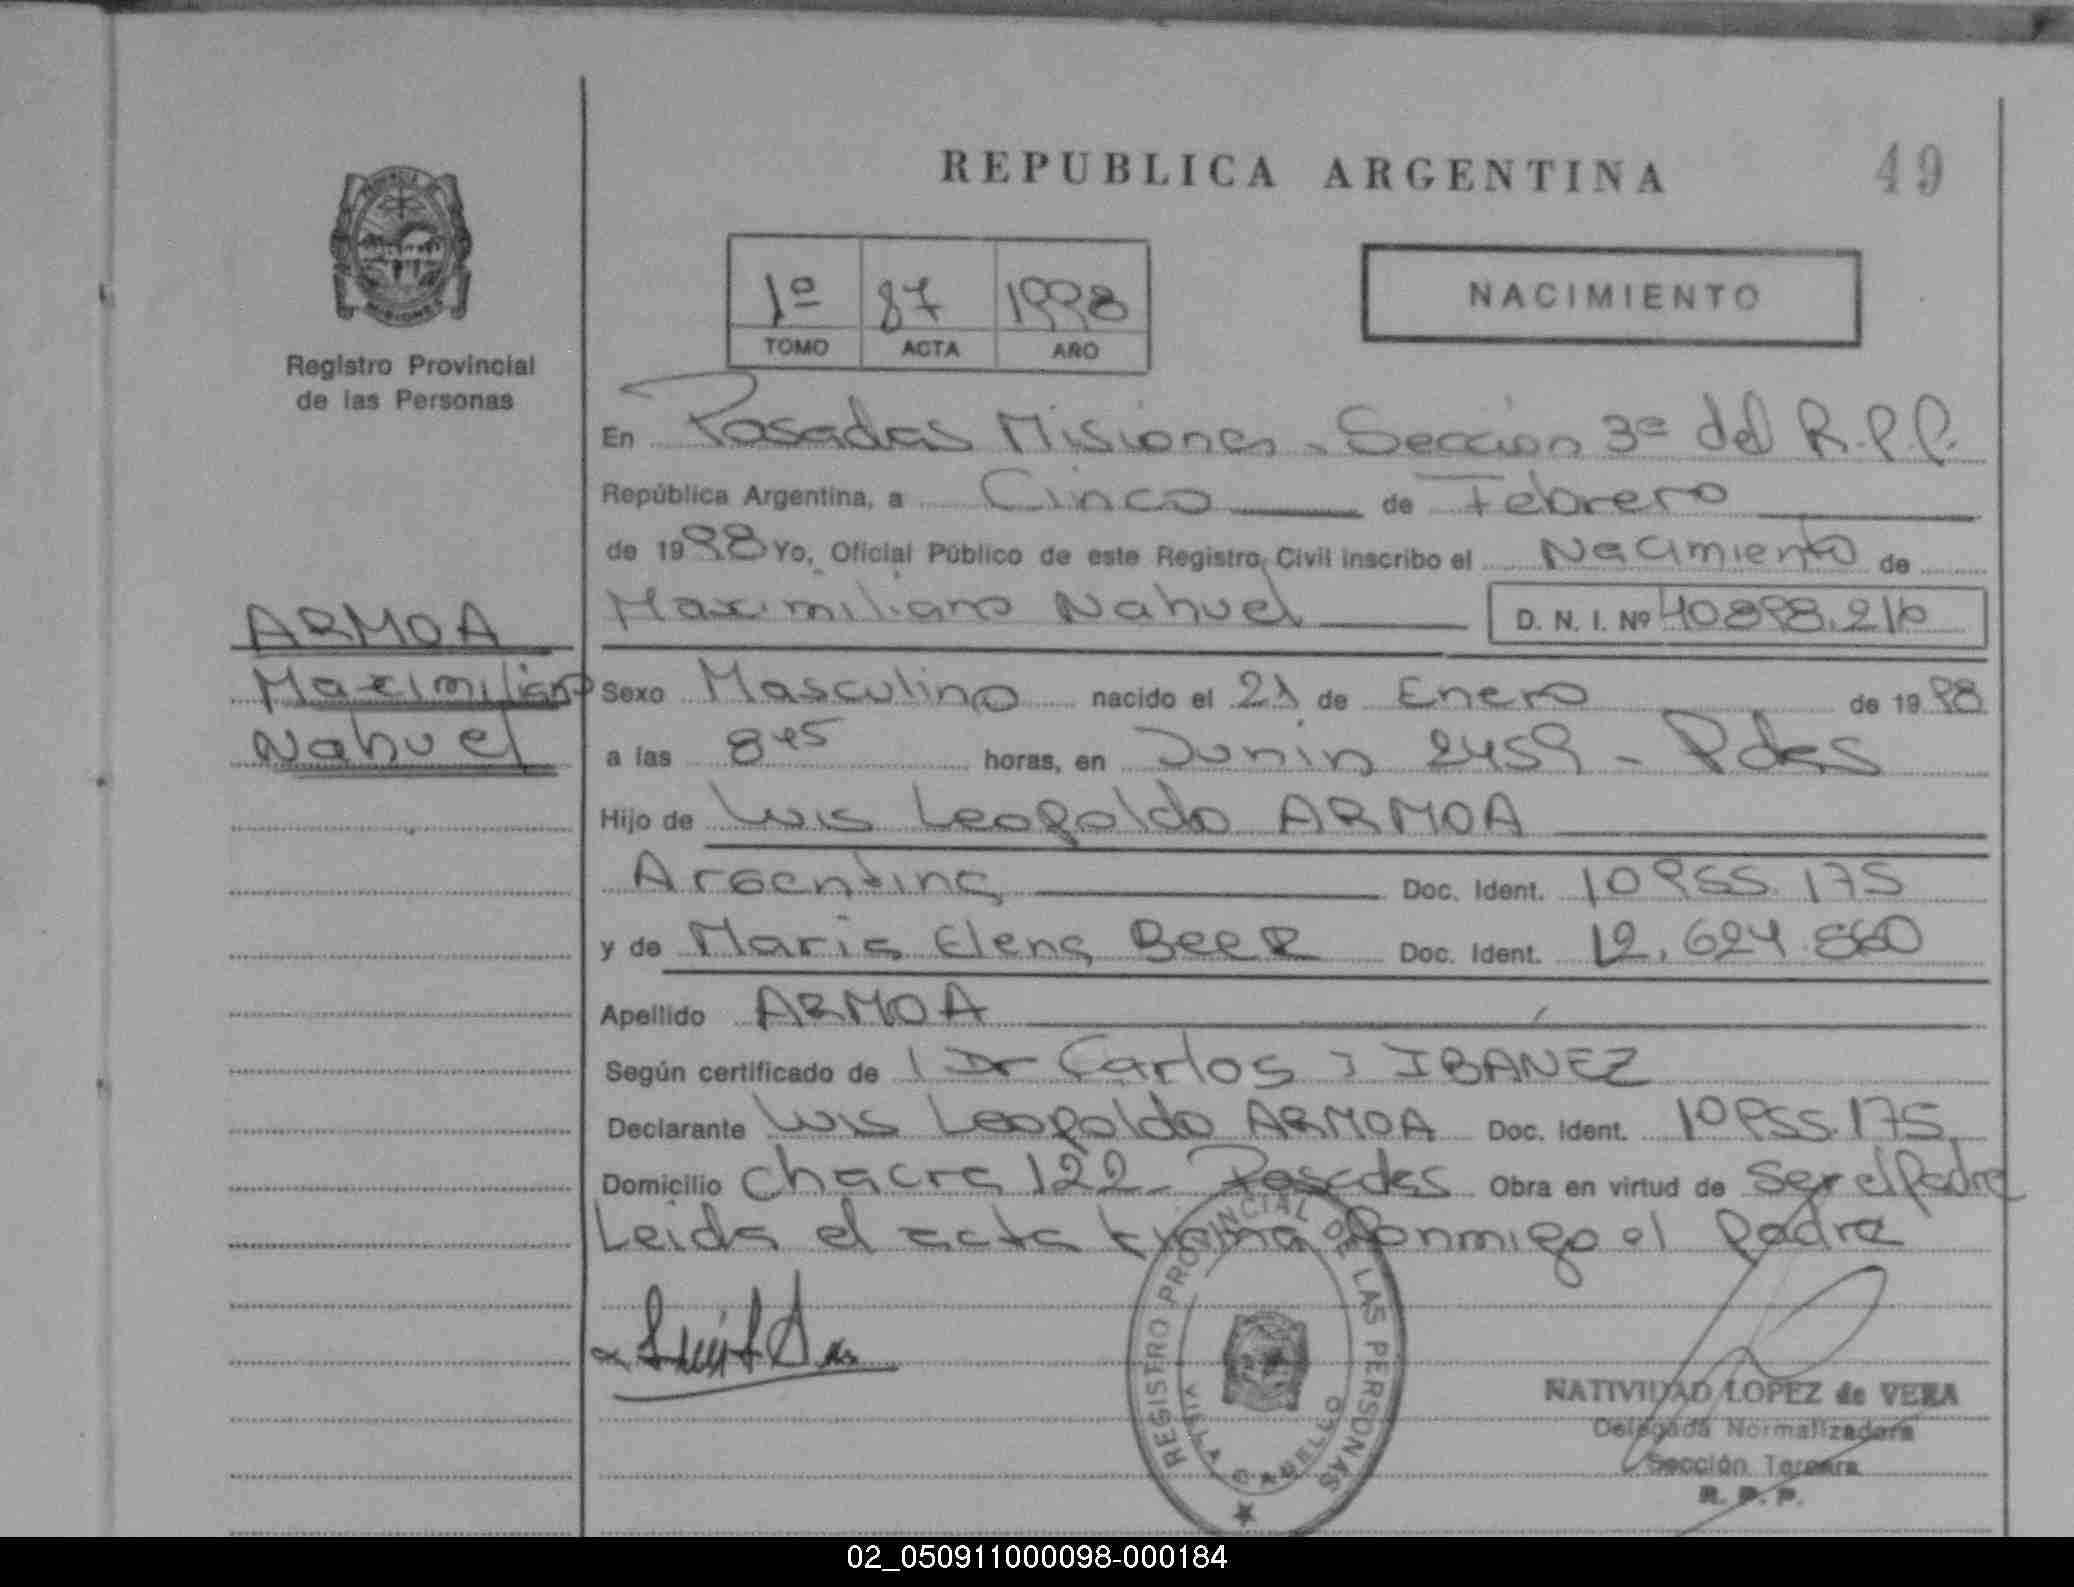 REPUBLICA ARGENTINA
49
1º 87 1998
TOMO ACTA AÑO
NACIMIENTO
Registro Provincial
de las Personas
En Posadas Misiones - Sección 3ª del R.P.P.
República Argentina, a Cinco de Febrero
de 1998 Yo, Oficial Público de este Registro Civil inscribo el Nacimiento de
Maximiliano Nahuel D. N. I. Nº 40898.216
ARMOA
Maximiliano
Nahuel
Sexo Masculino nacido el 21 de Enero de 1998
a las 8 45 horas, en Junin 2459 - Pdas
Hijo de Luis Leopoldo ARMOA
Argentina Doc. Ident. 10955.175
y de Maria Elena Beer Doc. Ident. 12.624.860
Apellido ARMOA
Según certificado de Dr Carlos J IBAÑEZ
Declarante Luis Leopoldo ARMOA Doc. Ident. 10955.175
Domicilio chacra 122 - Posadas Obra en virtud de ser el Padre
Leida el acta firma conmigo el padre
REGISTRO PROVINCIAL DE LAS PERSONAS
VILLA CABELLO
NATIVIDAD LOPEZ de VERA
Delegada Normalizadora
Sección Tercera
R. P. P.
02_050911000098-000184